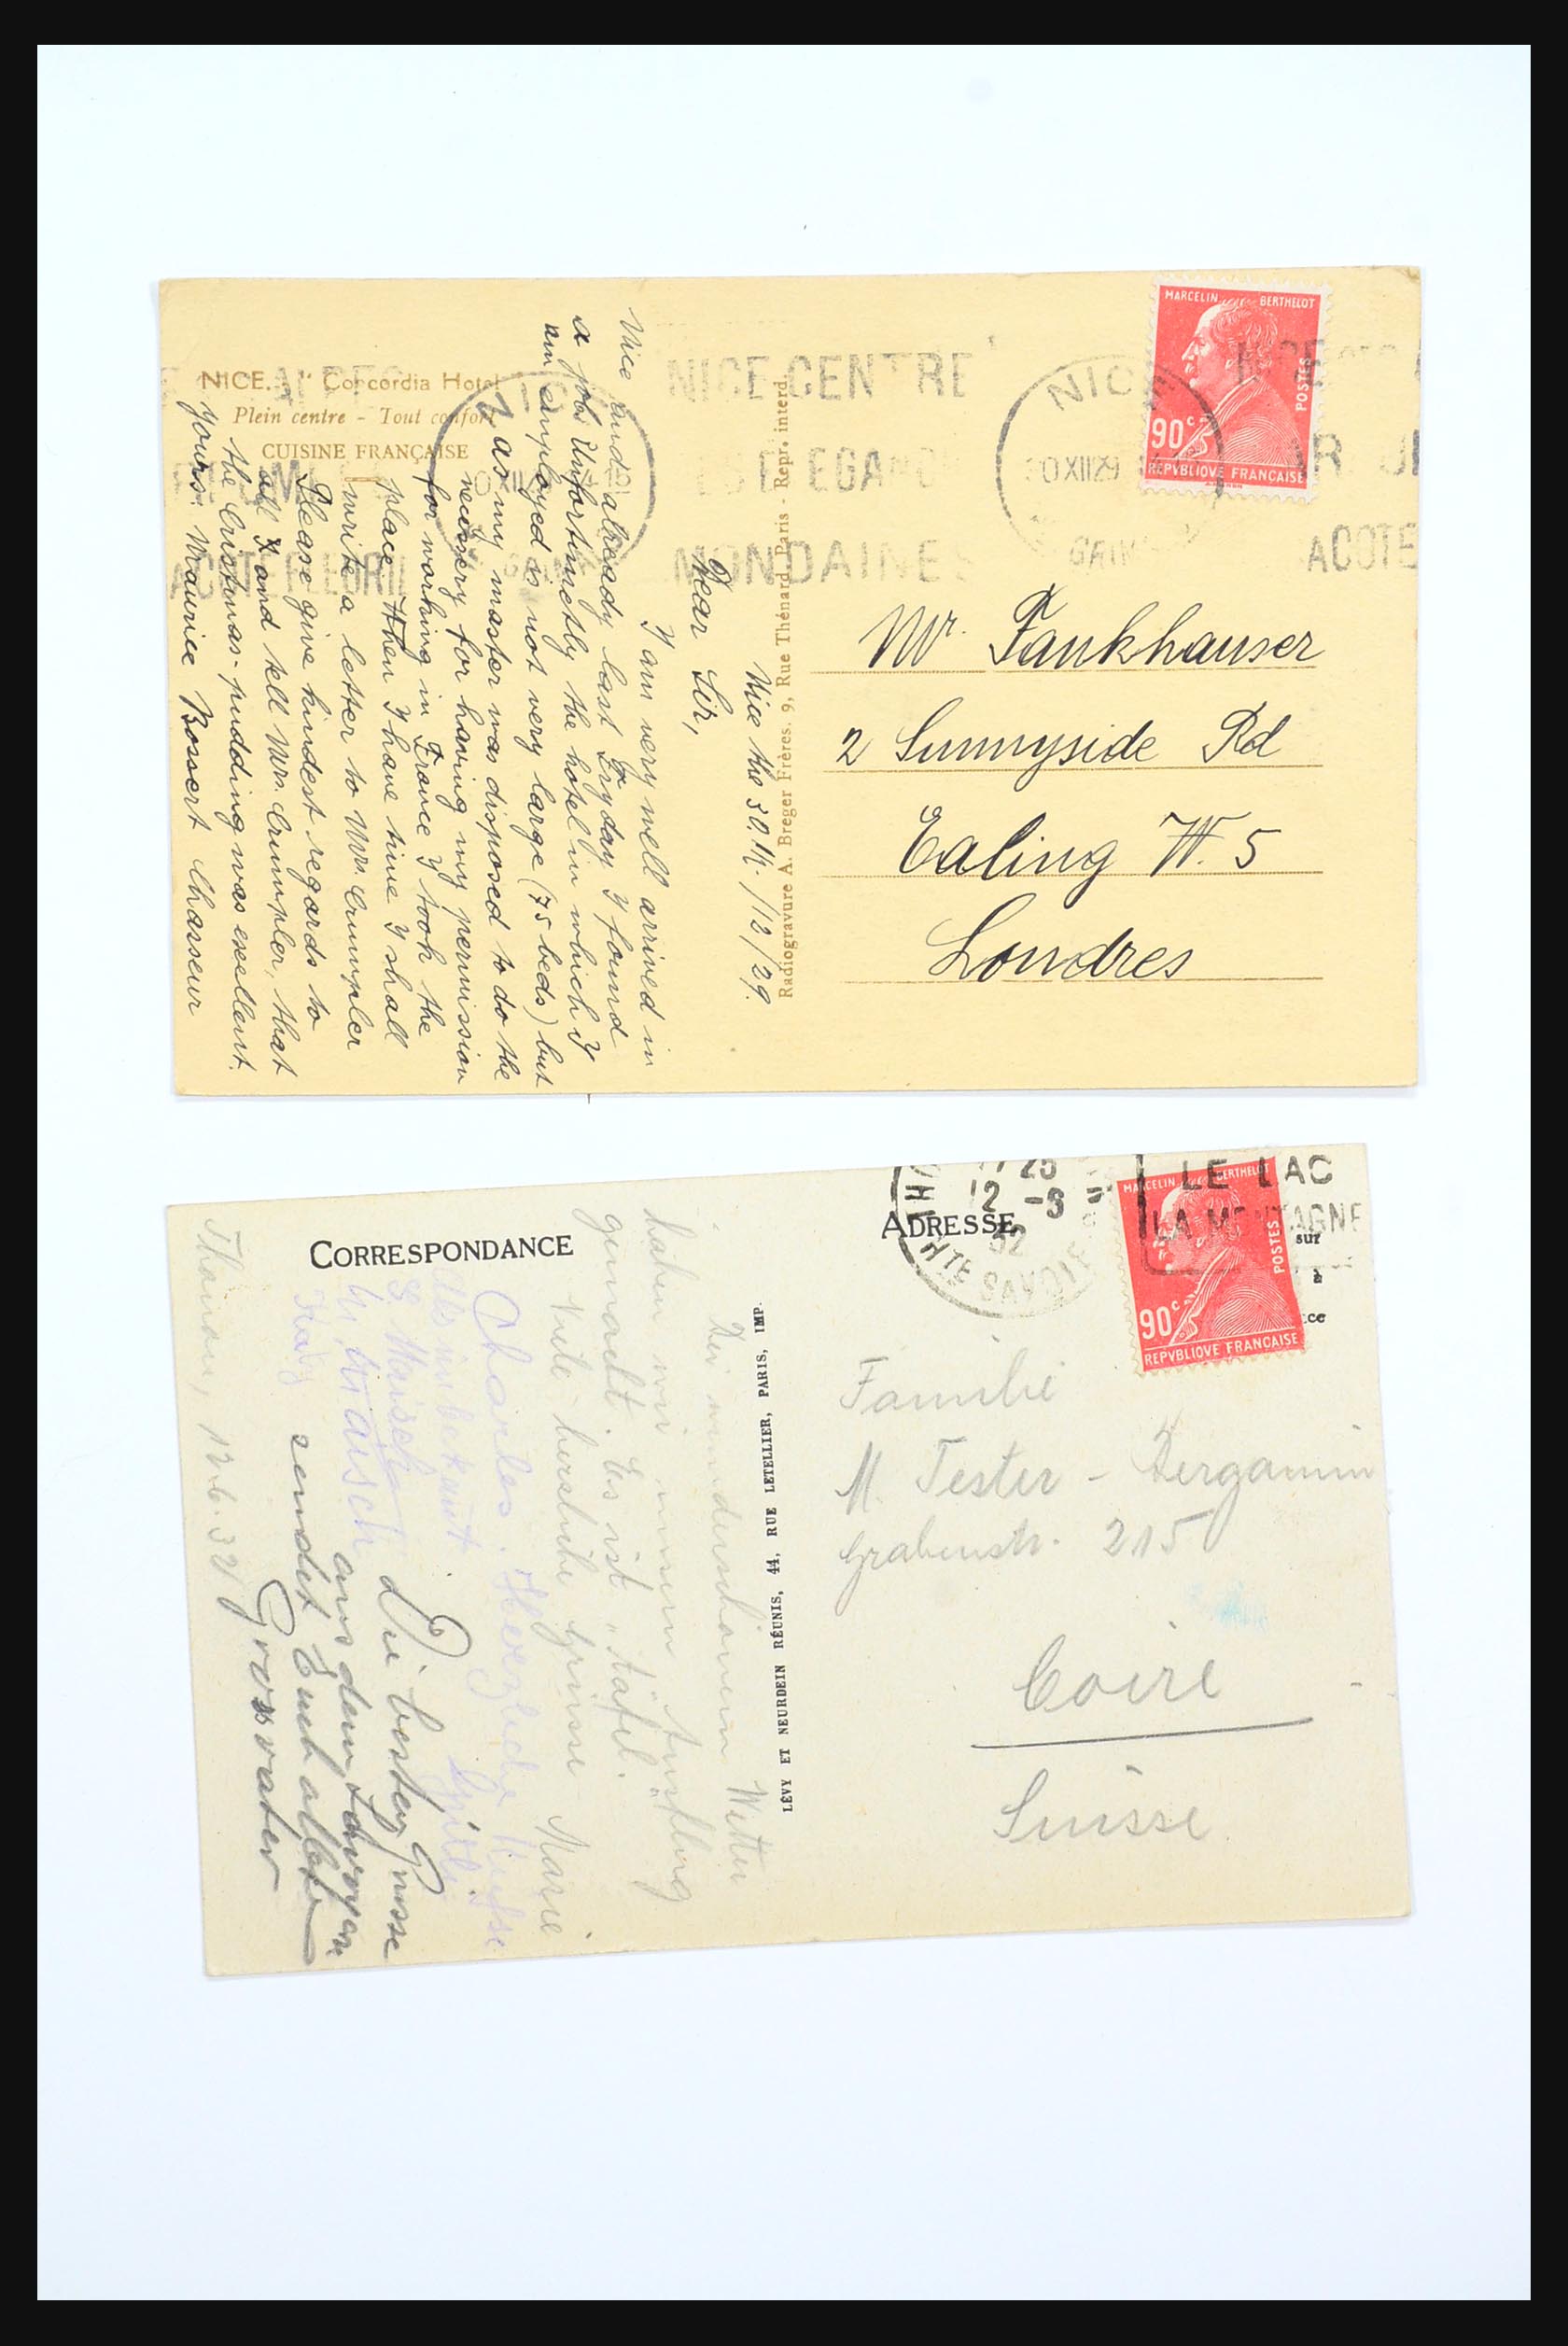 NICE. - "Concordia Hotel
Plein centre - Tout confort
CUISINE FRANÇAISE
Nice the 30.th./12/29.
Dear Sir,
I am very well arrived in
Nice and already last Fryday I found
a job. Unfortunetly the hotel in which I
am employed is not very large (75 beds) but
as my master was disposed to do the
necessery for having my permission
for working in France I took the
place. When I have time I shall
write a letter to Mr. Crumpler
Please give kindest regards to
all and tell Mrs. Crumpler, that
the Cristmas-pudding was exellent.
Yours: Maurice Bossert Chasseur
Radiogravure A. Breger Frères. 9, Rue Thénard, Paris - Repr. interd.
NICE CENTRE
MONDAINES
NICE
MARCELIN BERTHELOT
POSTES
90c
REPVBLIQVE FRANÇAISE
Mr. Fankhauser
2 Sunnyside Rd
Ealing W. 5
Londres
CORRESPONDANCE
ADRESSE
LE LAC
LA MONTAGNE
12 -6
32
HTE SAVOIE
MARCELIN BERTHELOT
POSTES
90c
REPVBLIQVE FRANÇAISE
sur
à
ce
Thonon, 12.6.32
Bei wunderschönem Wetter
haben wir unsern Ausflug
gemacht. Es ist "täfil".
Viele herzliche Grüsse Marie
Charles. Herzliche Grüsse
Die besten Grüsse
aus dem Savoyen
sendet Euch allen
Grossvater
LÉVY ET NEURDEIN RÉUNIS, 44, RUE LETELLIER, PARIS, IMP.
Familie
M. Tester - Bergamin
Grabenstr. 215
Coire
Suisse